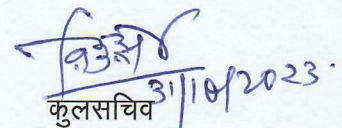 31/10/2023.
कुलसचिव